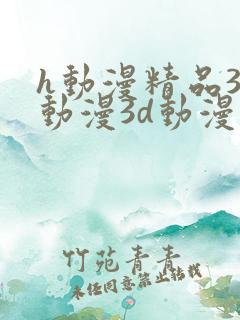 h動漫精品3
動漫3d動漫
竹苑青青
未经同意禁止转载